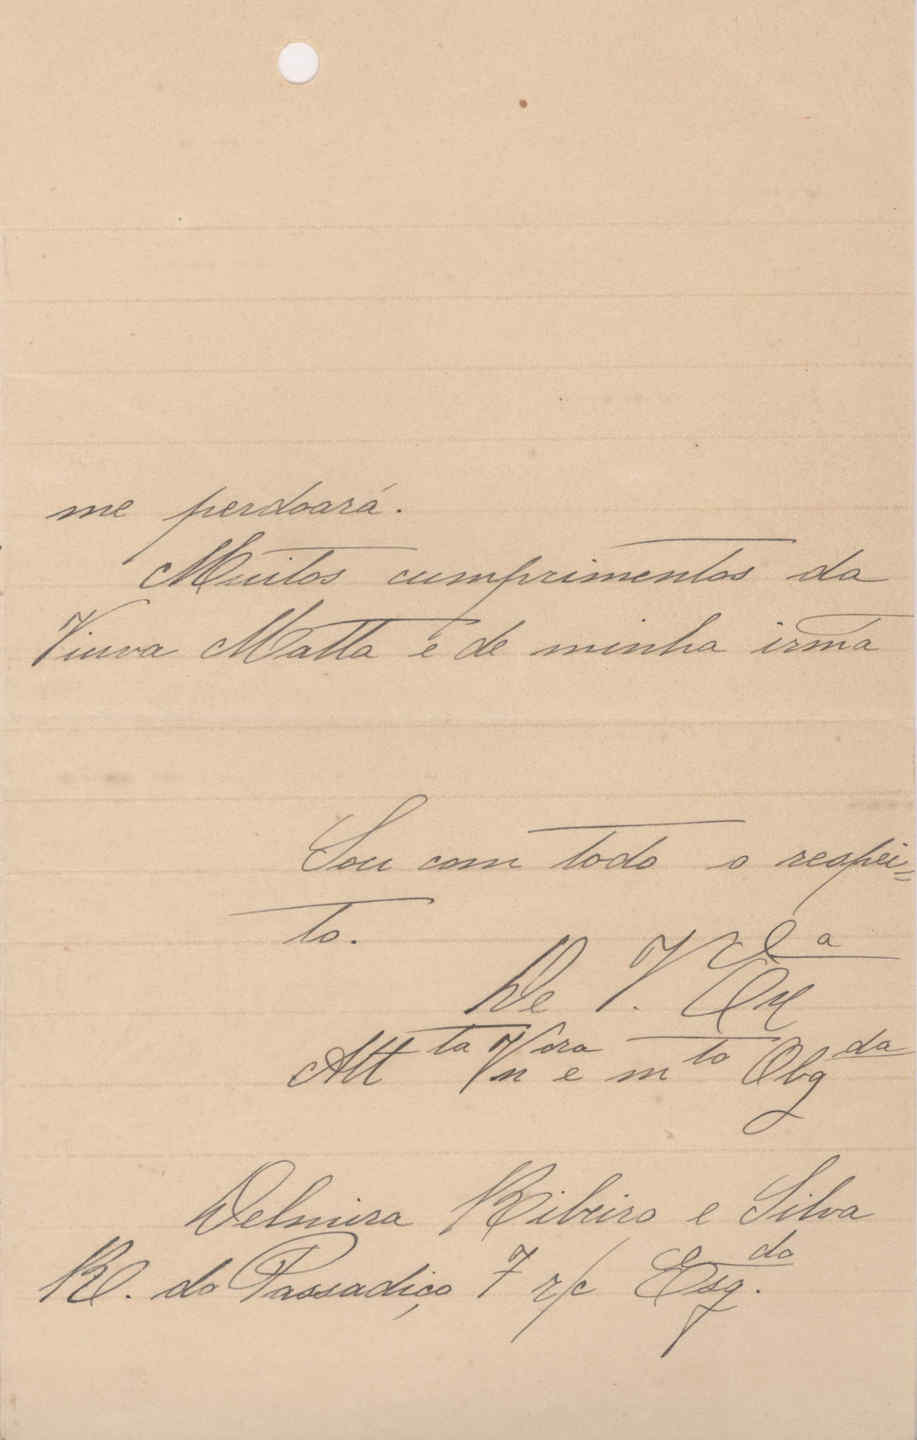 me perdoará.
Muitos cumprimentos da
Viuva Matta e de minha irmã
Sou com todo o respei=
to.
De V. Exª
Attta Vnora e mto Obgda
Delmira Ribeiro e Silva
R. do Passadiço 7 r/c Esq.do